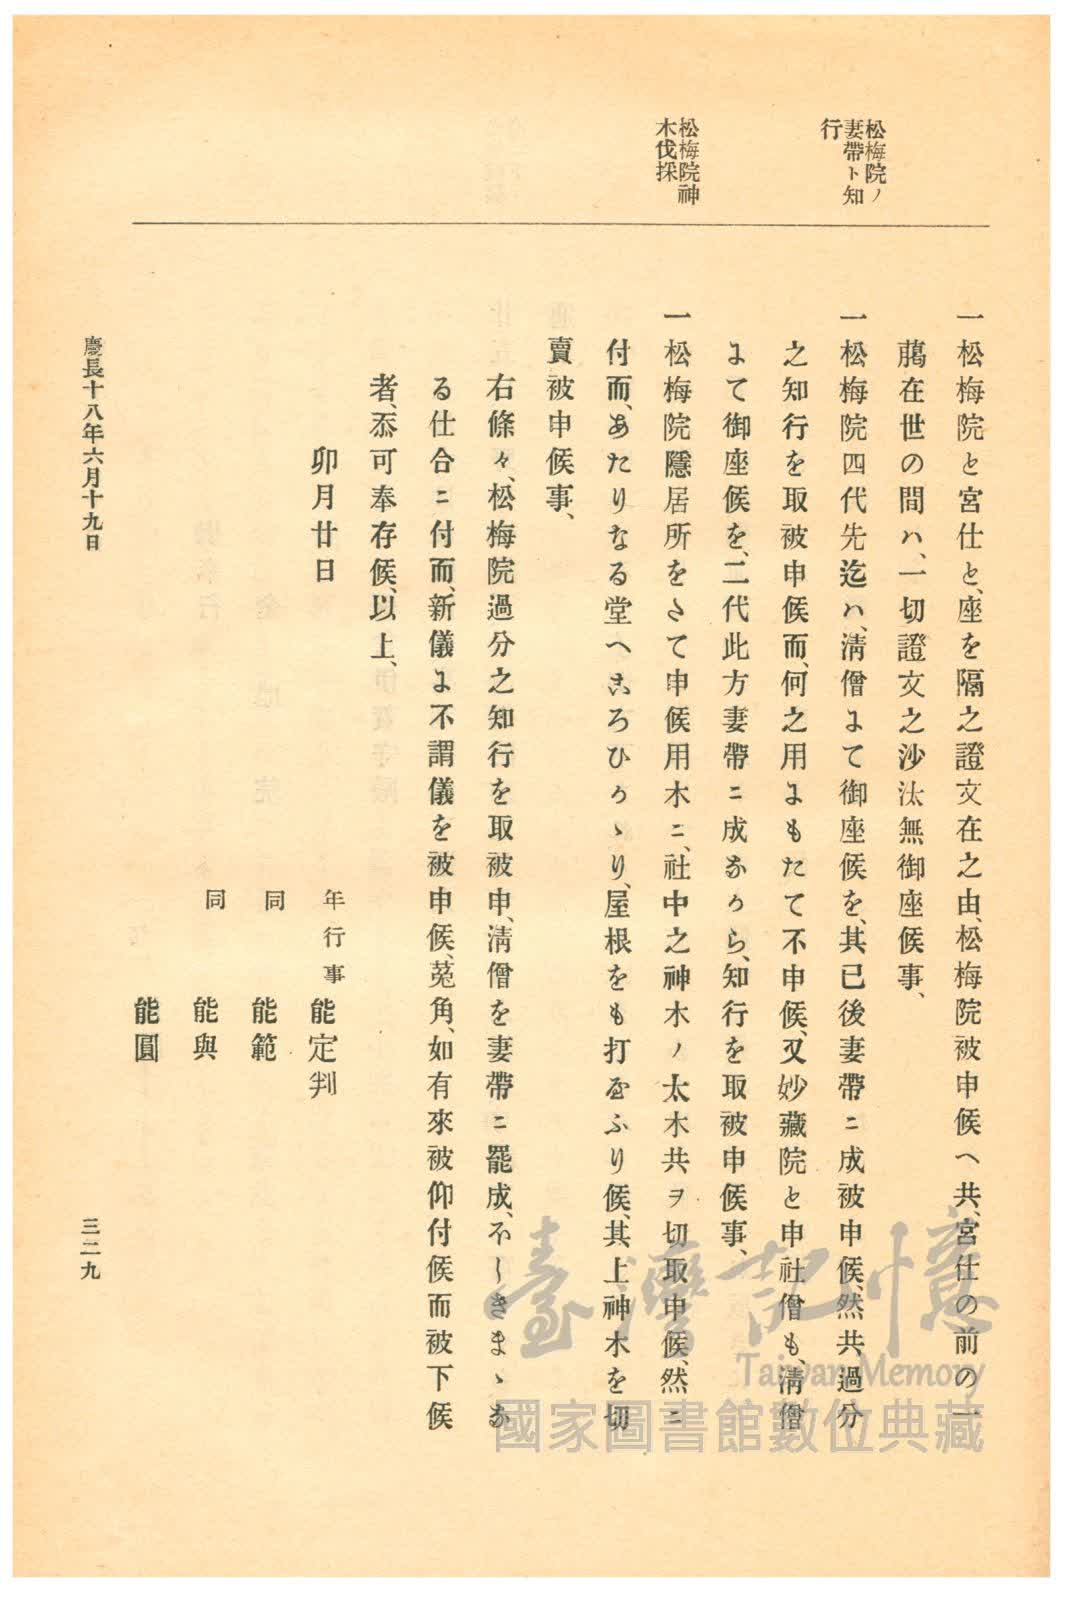 松梅院ノ
妻帶ト知
行
松梅院神
木伐採
一松梅院と宮仕と、座を隔之證文在之由、松梅院被申候へ共、宮仕の前の一
﨟在世の間ハ、一切證文之沙汰無御座候事、
一松梅院四代先迄ハ、淸僧ニて御座候を、其已後妻帶ニ成被申候、然共過分
之知行を取被申候而、何之用ニもたて不申候、又妙藏院と申社僧も、淸僧
ニて御座候を、二代此方妻帶ニ成なから、知行を取被申候事、
一松梅院隱居所をさて申候用木ニ、社中之神木ノ太木共ヲ切取申候、然ニ
付而、あたりなる堂へころひかゝり、屋根をも打やふり候、其上神木を切
賣被申候事、
右條々、松梅院過分之知行を取被申、淸僧を妻帶ニ罷成、ほしきまゝな
る仕合ニ付而、新儀ニ不謂儀を被申候、菟角、如有來被仰付候而被下候
者、忝可奉存候、以上、
卯月廿日
年行事 能定判
同 能範
同 能與
能圓
慶長十八年六月十九日
三二九
臺灣記憶
Taiwan Memory
國家圖書館數位典藏